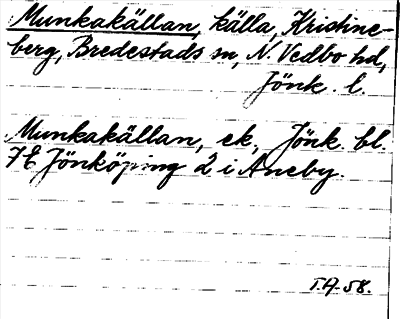 Munkakällan, källa, Kristine-
berg, Bredestads sn, N. Vedbo hd,
Jönk. l.
Munkakällan, ek. Jönk. bl.
7E Jönköping 2 i Aneby.
T.A. 58.